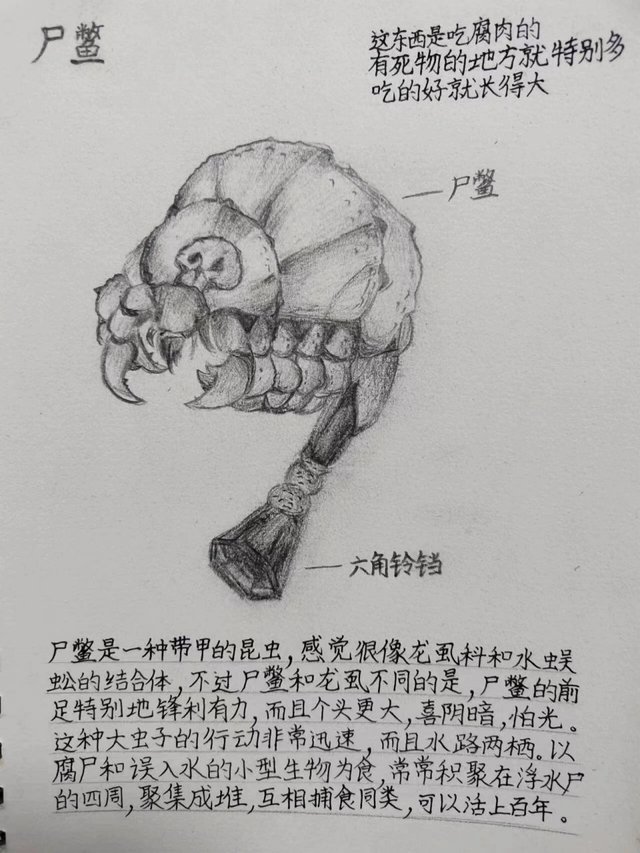 尸鳖
这东西是吃腐肉的
有死物的地方就特别多
吃的好就长得大
尸鳖
六角铃铛
尸鳖是一种带甲的昆虫,感觉很像龙虱科和水蜈
蚣的结合体,不过尸鳖和龙虱不同的是,尸鳖的前
足特别地锋利有力,而且个头更大,喜阴暗,怕光。
这种大虫子的行动非常迅速,而且水路两栖。以
腐尸和误入水的小型生物为食,常常积聚在浮水尸
的四周,聚集成堆,互相捕食同类,可以活上百年。